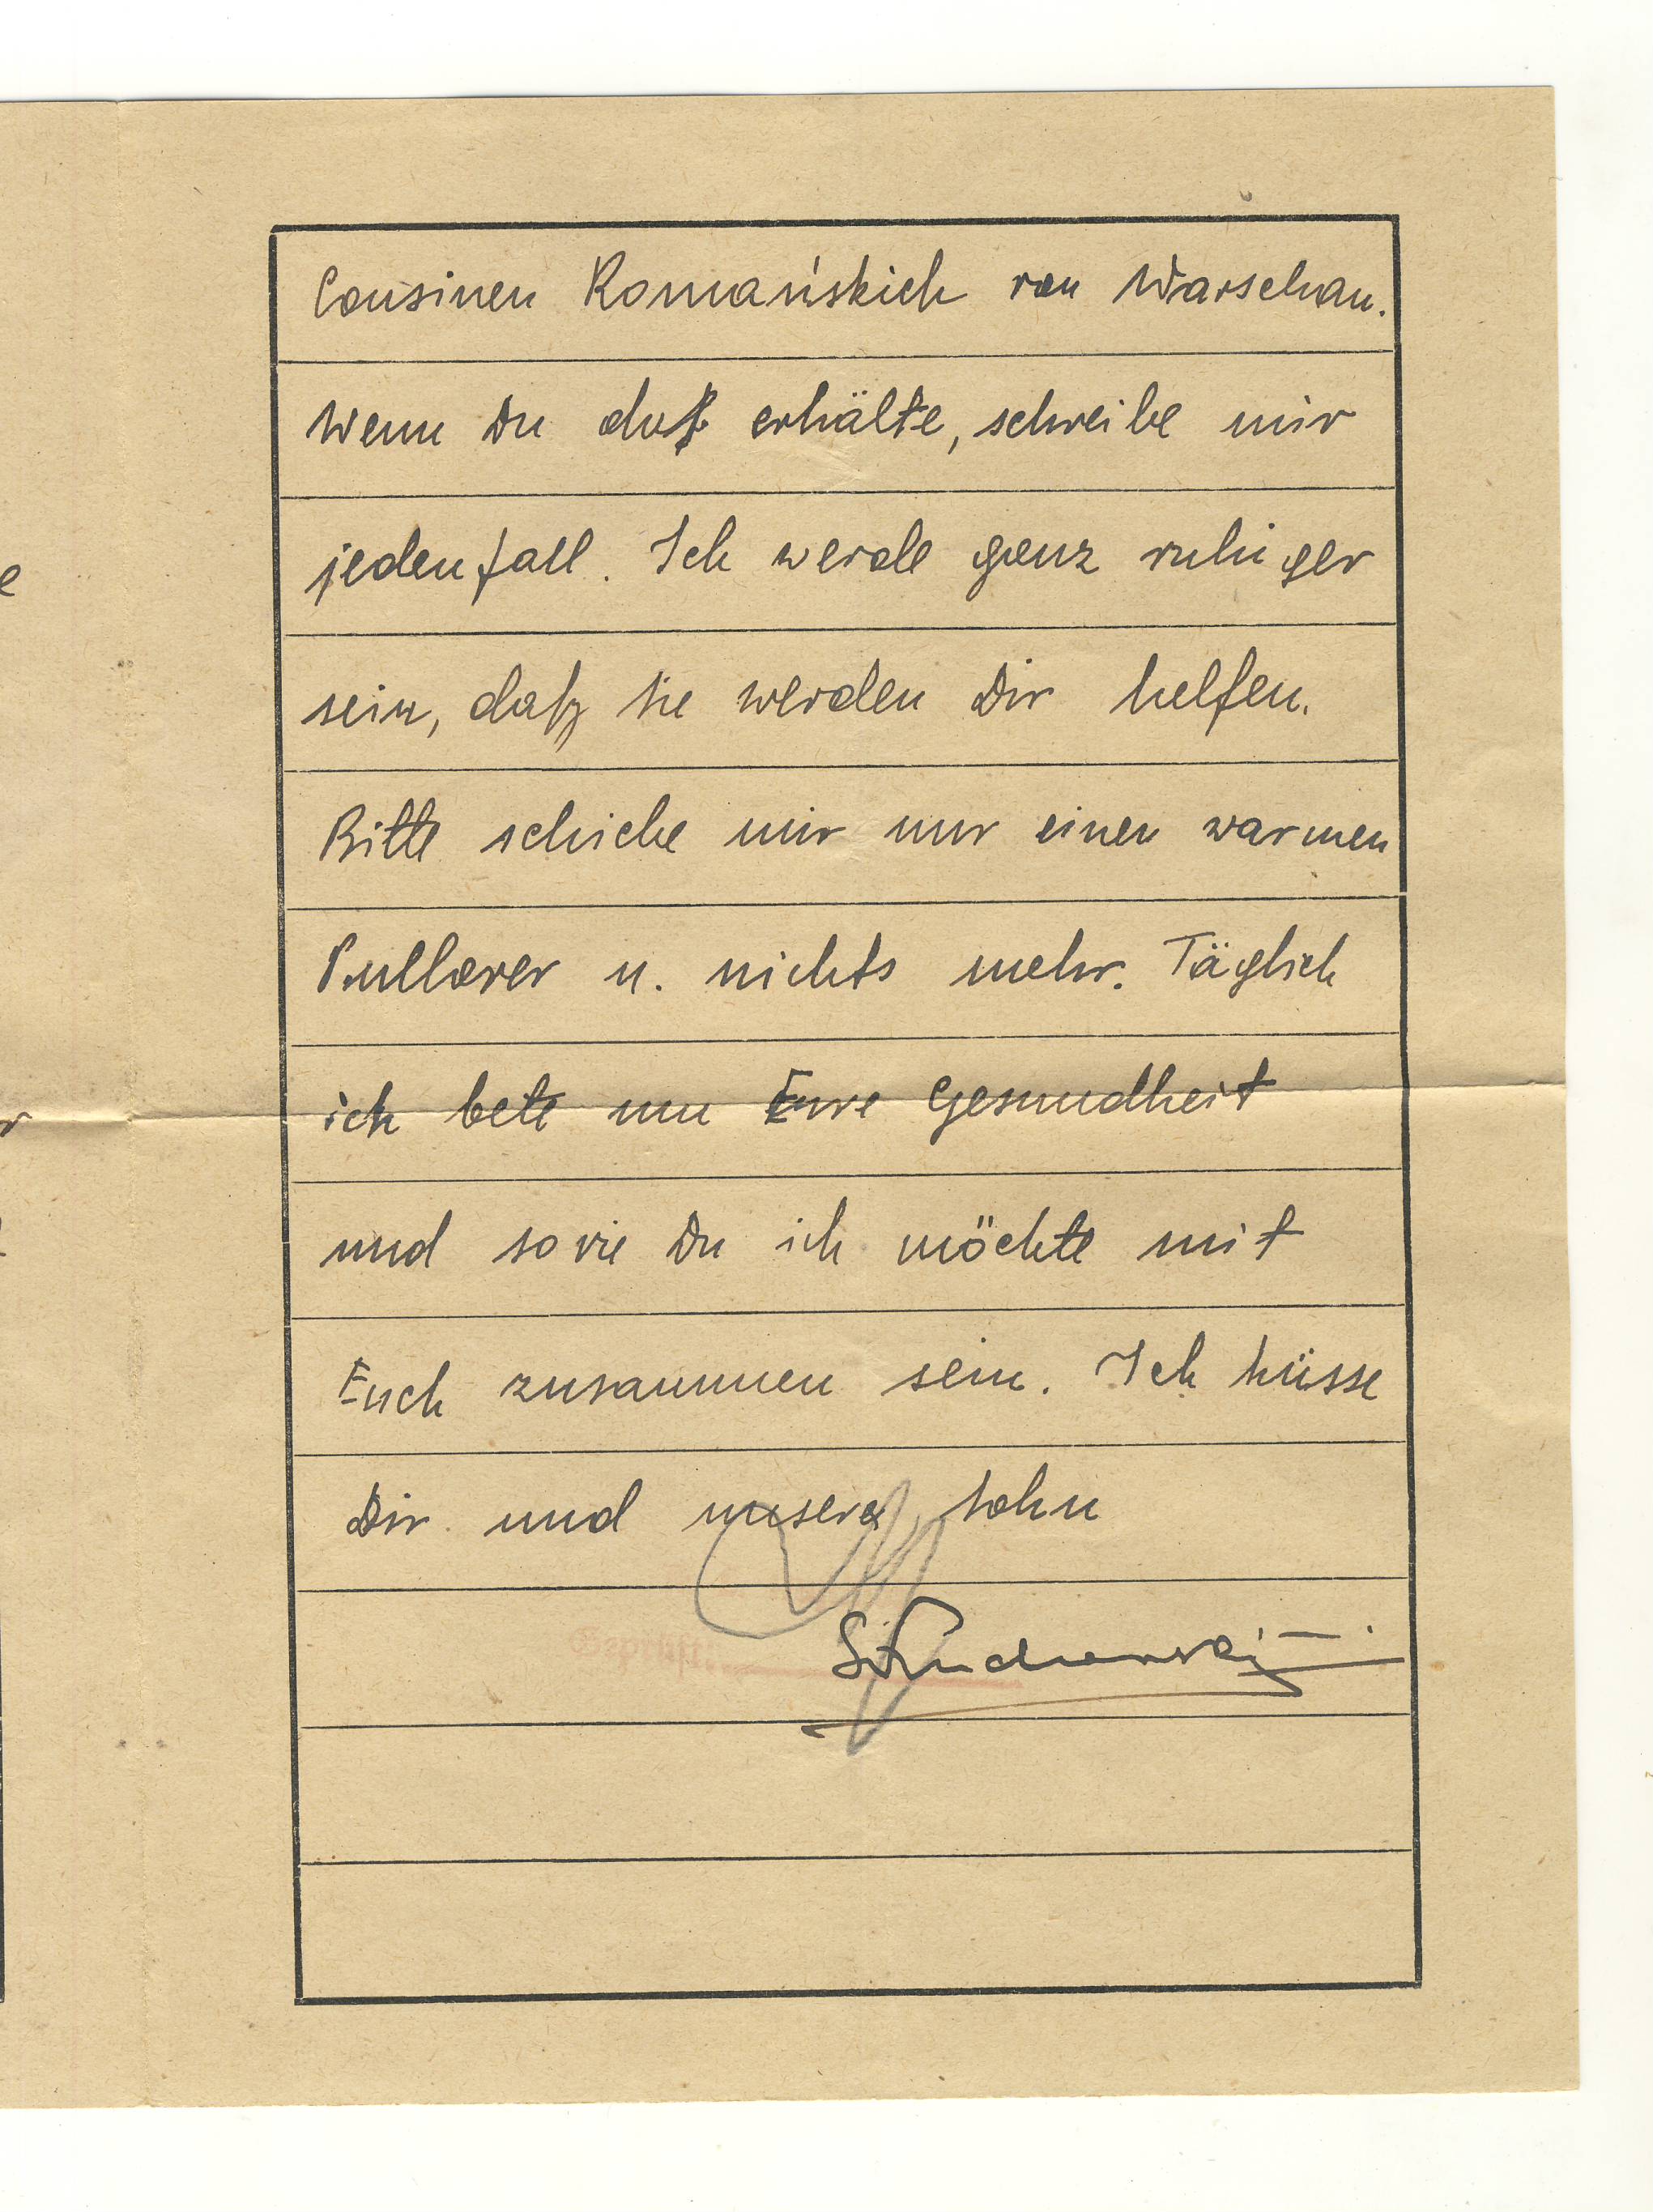 Cousinen Romańskich von Warschau.
Wenn Du daß erhälte, schreibe mir
jedenfall. Ich werde ganz ruhiger
sein, daß sie werden Dir helfen.
Bitte schicke mir nur einen warmen
Pullover u. nichts mehr. Täglich
ich bete um Eure Gesundheit
und so wie Du ich möchte mit
Euch zusammen sein. Ich küsse
Dir und unsere Sohn
Geprüft: